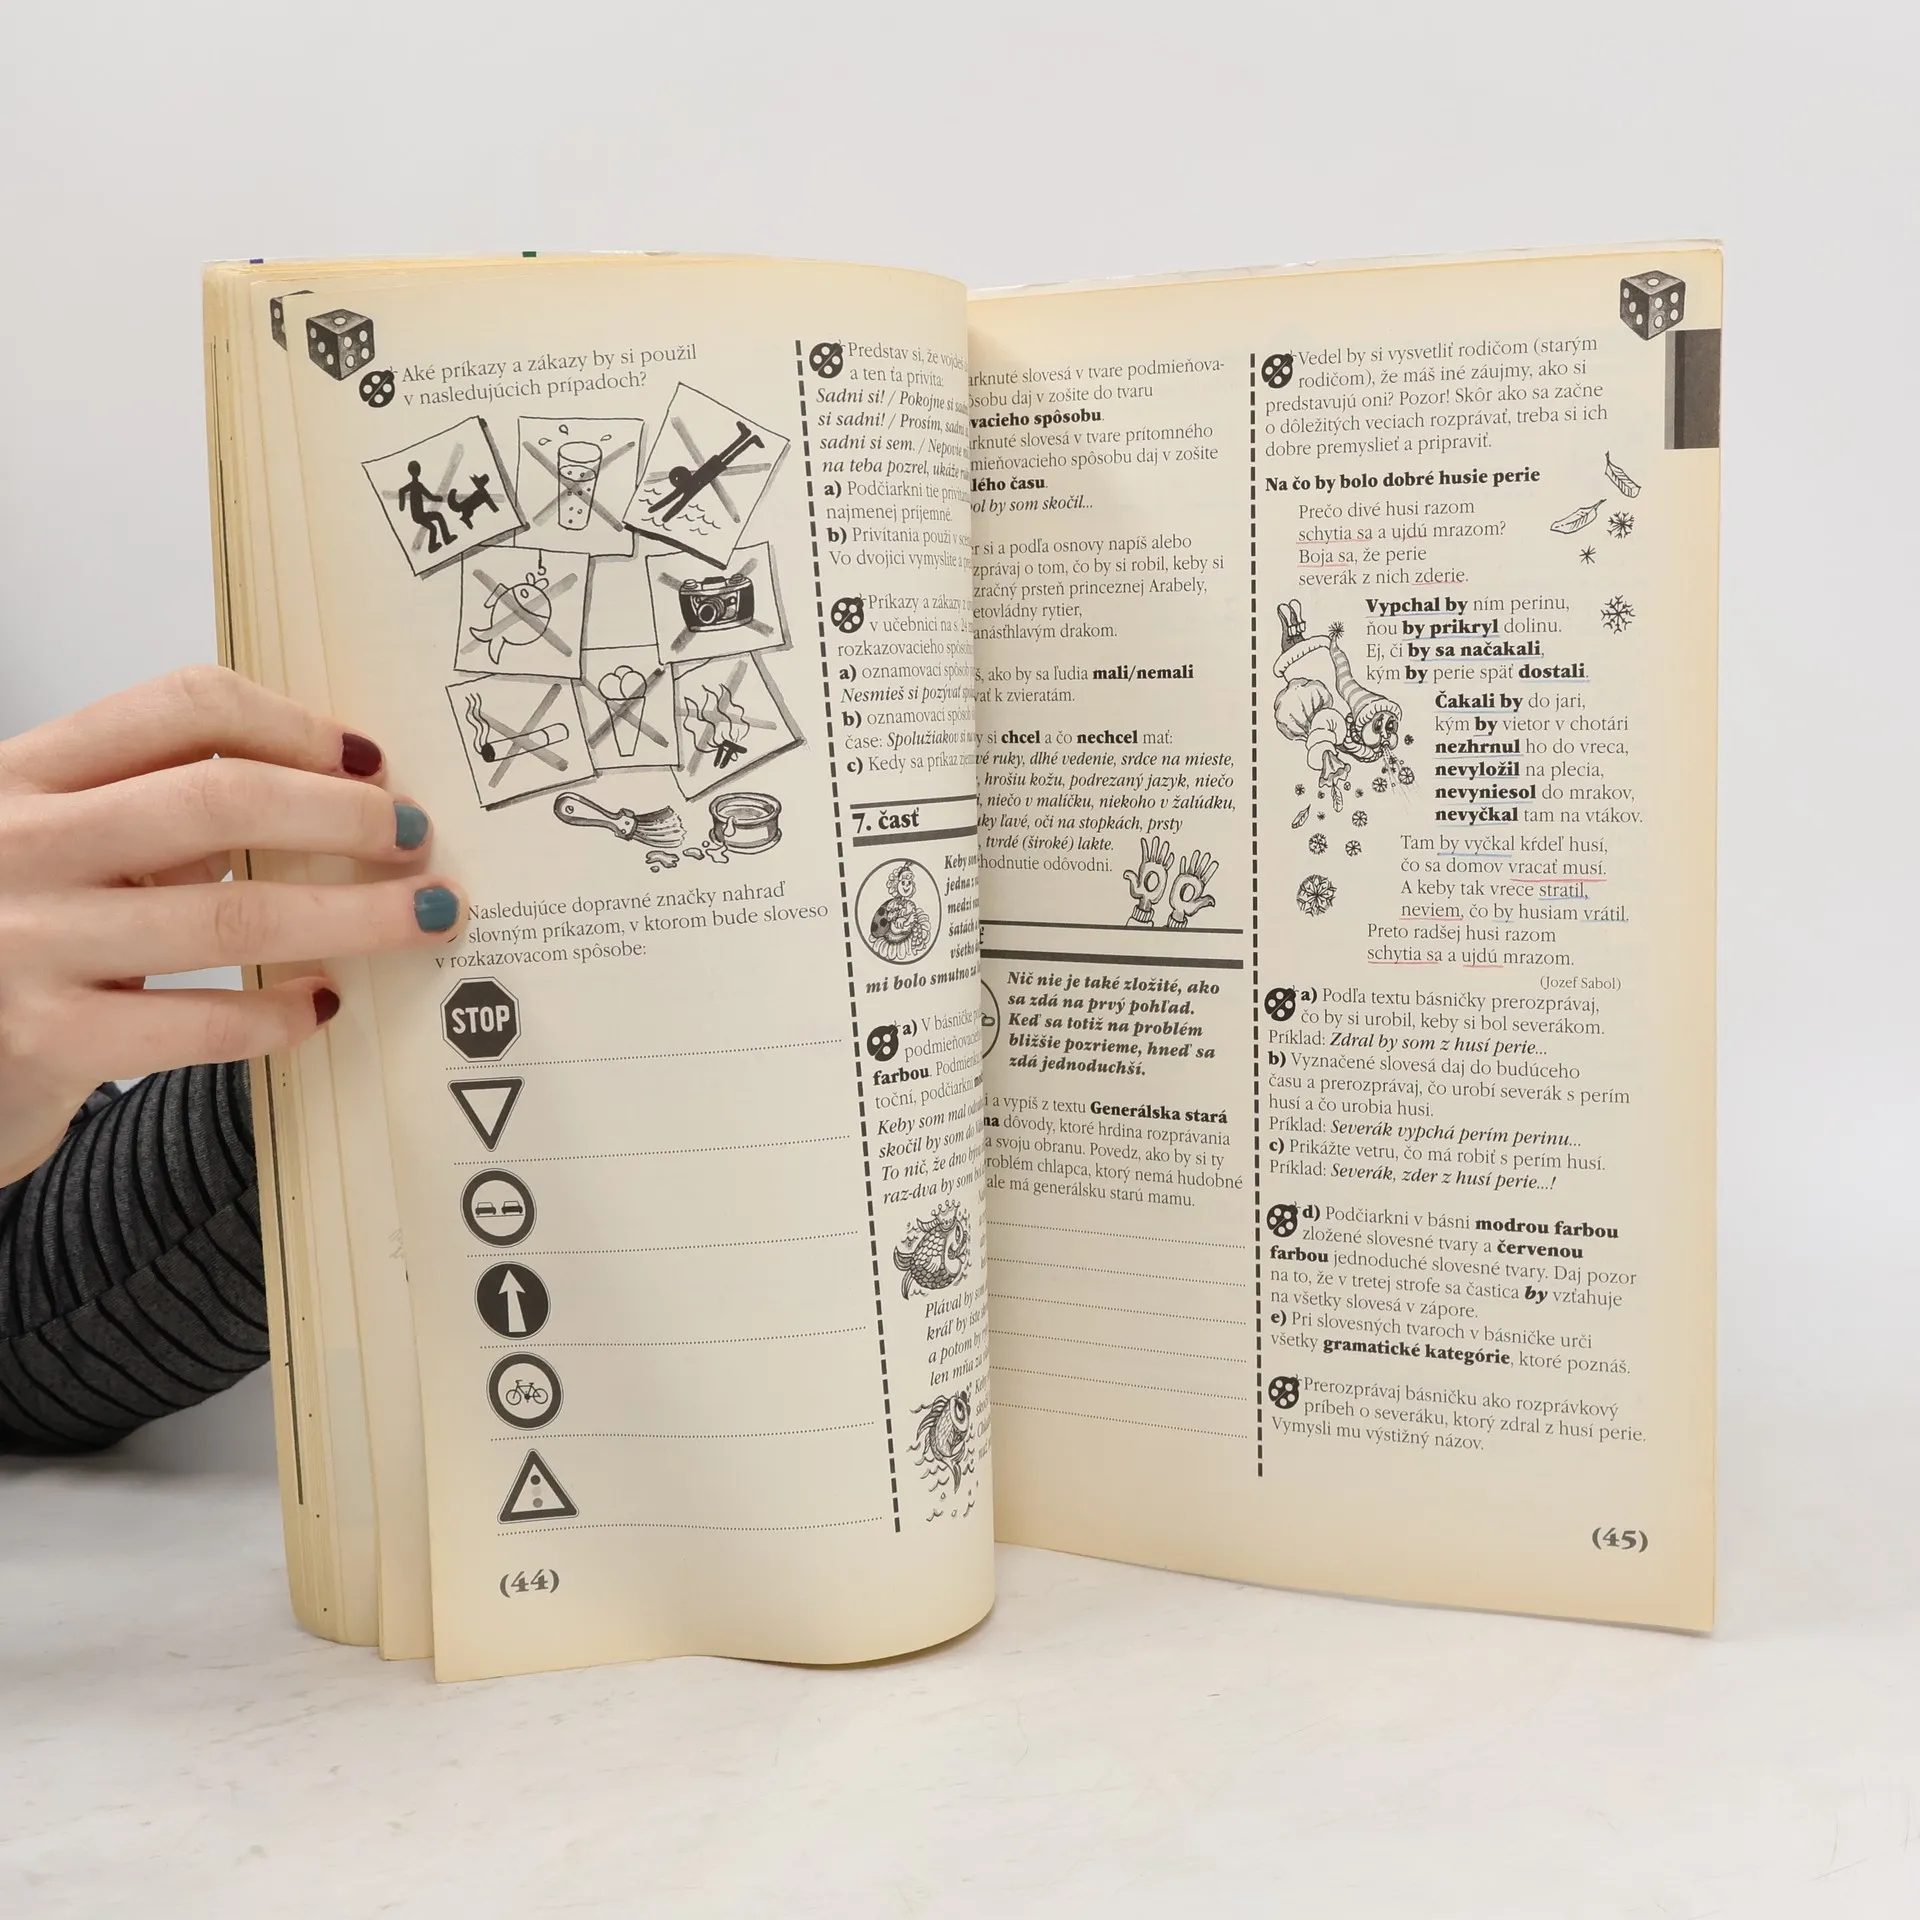 Aké príkazy a zákazy by si použil
v nasledujúcich prípadoch?
Nasledujúce dopravné značky nahraď
slovným príkazom, v ktorom bude sloveso
v rozkazovacom spôsobe:
STOP
(44)
Predstav si, že vojdeš
a ten ťa privíta:
Sadni si! / Pokojne si
si sadni! / Prosím,
sadni si sem. / Nepovie
na teba pozrel, ukáže
a) Podčiarkni tie
najmenej príjemné.
b) Privítania použi v
Vo dvojici vymyslite a
Príkazy a zákazy z
v učebnici na s. 24
rozkazovacieho
a) oznamovací spôsob
Nesmieš si pozývať
b) oznamovací spôsob
čase: Spolužiakov si
c) Kedy sa príkaz
7. časť
Keby som
jedna z
medzi
šatách
všetko
mi bolo smutno za
a) V básničke
farbou.
podčiarkni
Keby som mal
skočil by som do
To nič, že dno
raz-dva by som
Plával by som
kráľ by iste
a potom by
len mňa za
slovesá v tvare podmieňova-
daj v zošite do tvaru
slovesá v tvare prítomného
spôsobu daj v zošite
času.
by som skočil...
si a podľa osnovy napíš alebo
o tom, čo by si robil, keby si
prsteň princeznej Arabely,
rytier,
drakom.
ako by sa ľudia mali/nemali
k zvieratám.
si chcel a čo nechcel mať:
ruky, dlhé vedenie, srdce na mieste,
hrošiu kožu, podrezaný jazyk, niečo
niečo v malíčku, niekoho v žalúdku,
ľavé, oči na stopkách, prsty
tvrdé (široké) lakte.
odôvodni.
Nič nie je také zložité, ako
sa zdá na prvý pohľad.
Keď sa totiž na problém
bližšie pozrieme, hneď sa
zdá jednoduchší.
a vypíš z textu Generálska stará
dôvody, ktoré hrdina rozprávania
svoju obranu. Povedz, ako by si ty
chlapca, ktorý nemá hudobné
ale má generálsku starú mamu.
Vedel by si vysvetliť rodičom (starým
rodičom), že máš iné záujmy, ako si
predstavujú oni? Pozor! Skôr ako sa začne
o dôležitých veciach rozprávať, treba si ich
dobre premyslieť a pripraviť.
Na čo by bolo dobré husie perie
Prečo divé husi razom
schytia sa a ujdú mrazom?
Boja sa, že perie
severák z nich zderie.
Vypchal by ním perinu,
ňou by prikryl dolinu.
Ej, či by sa načakali,
kým by perie späť dostali.
Čakali by do jari,
kým by vietor v chotári
nezhrnul ho do vreca,
nevyložil na plecia,
nevyniesol do mrakov,
nevyčkal tam na vtákov.
Tam by vyčkal kŕdeľ husí,
čo sa domov vracať musí.
A keby tak vrece stratil,
neviem, čo by husiam vrátil.
Preto radšej husi razom
schytia sa a ujdú mrazom.
(Jozef Sabol)
a) Podľa textu básničky prerozprávaj,
čo by si urobil, keby si bol severákom.
Príklad: Zdral by som z husí perie...
b) Vyznačené slovesá daj do budúceho
času a prerozprávaj, čo urobí severák s perím
husí a čo urobia husi.
Príklad: Severák vypchá perím perinu...
c) Prikážte vetru, čo má robiť s perím husí.
Príklad: Severák, zder z husí perie...!
d) Podčiarkni v básni modrou farbou
zložené slovesné tvary a červenou
farbou jednoduché slovesné tvary. Daj pozor
na to, že v tretej strofe sa častica by vzťahuje
na všetky slovesá v zápore.
e) Pri slovesných tvaroch v básničke urči
všetky gramatické kategórie, ktoré poznáš.
Prerozprávaj básničku ako rozprávkový
príbeh o severáku, ktorý zdral z husí perie.
Vymysli mu výstižný názov.
(45)